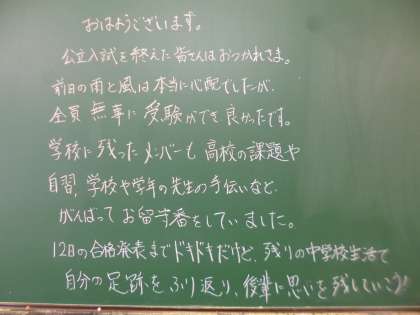 おはようございます。
公立入試を終えた皆さんはおつかれさま。
前日の雨と風は本当に心配でしたが、
全員無事に受験ができ良かったです。
学校に残ったメンバーも高校の課題や
自習、学校や学年の先生の手伝いなど、
がんばってお留守番をしていました。
12日の合格発表までドキドキだけど、残りの中学校生活で
自分の足跡をふり返り、後輩に思いを残していこう!